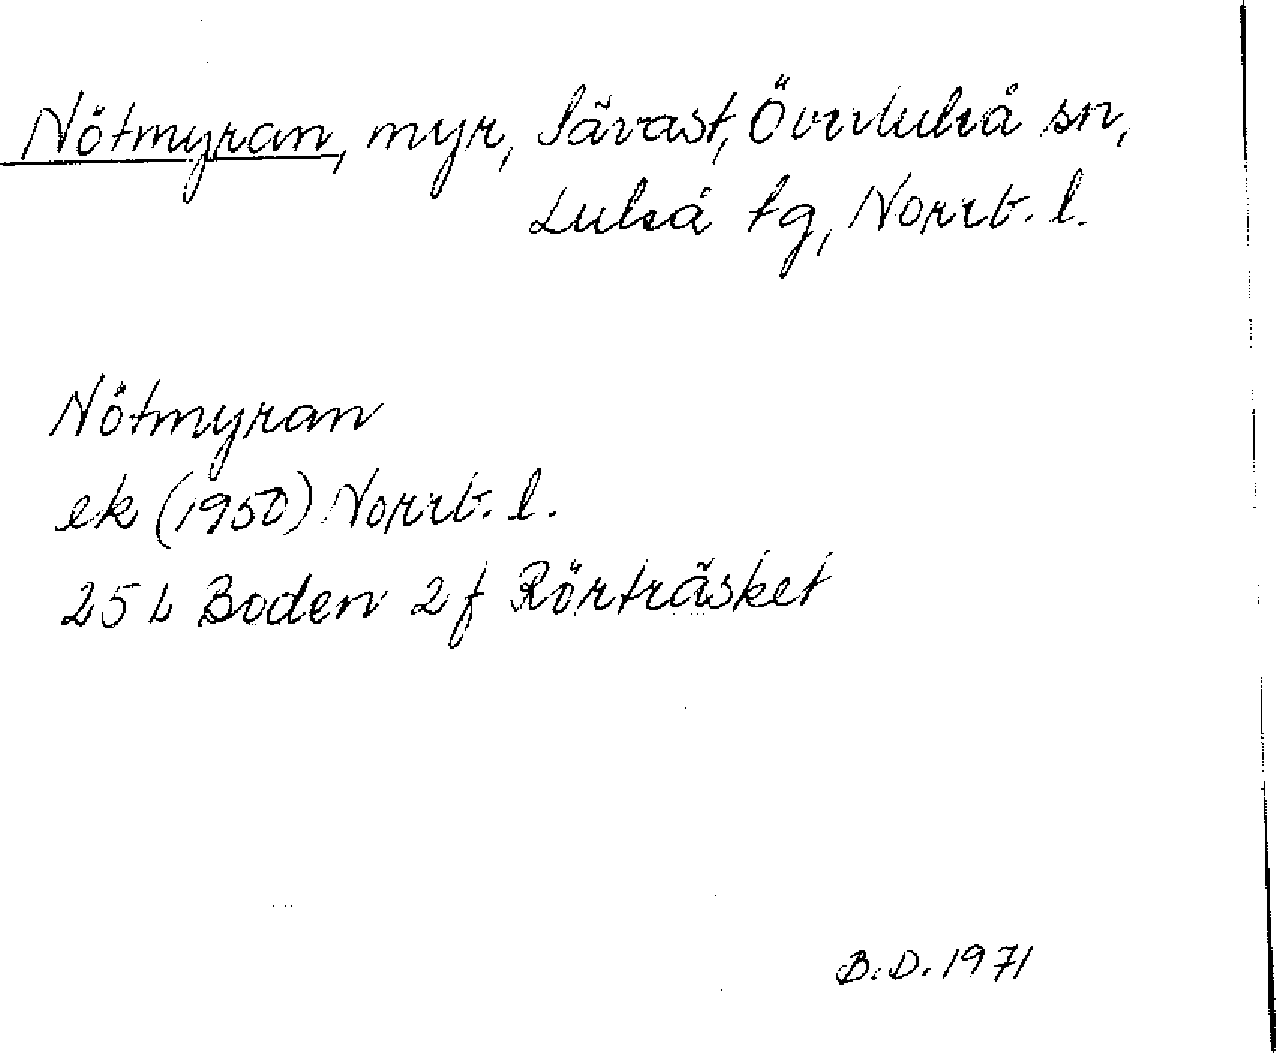 Nötmyran, myr, Sävast, Överluleå sn,
Luleå tg, Norrb. l.
Nötmyran
ek (1950) Norrb. l.
25 L Boden 2 f Rörträsket
B.D. 1971